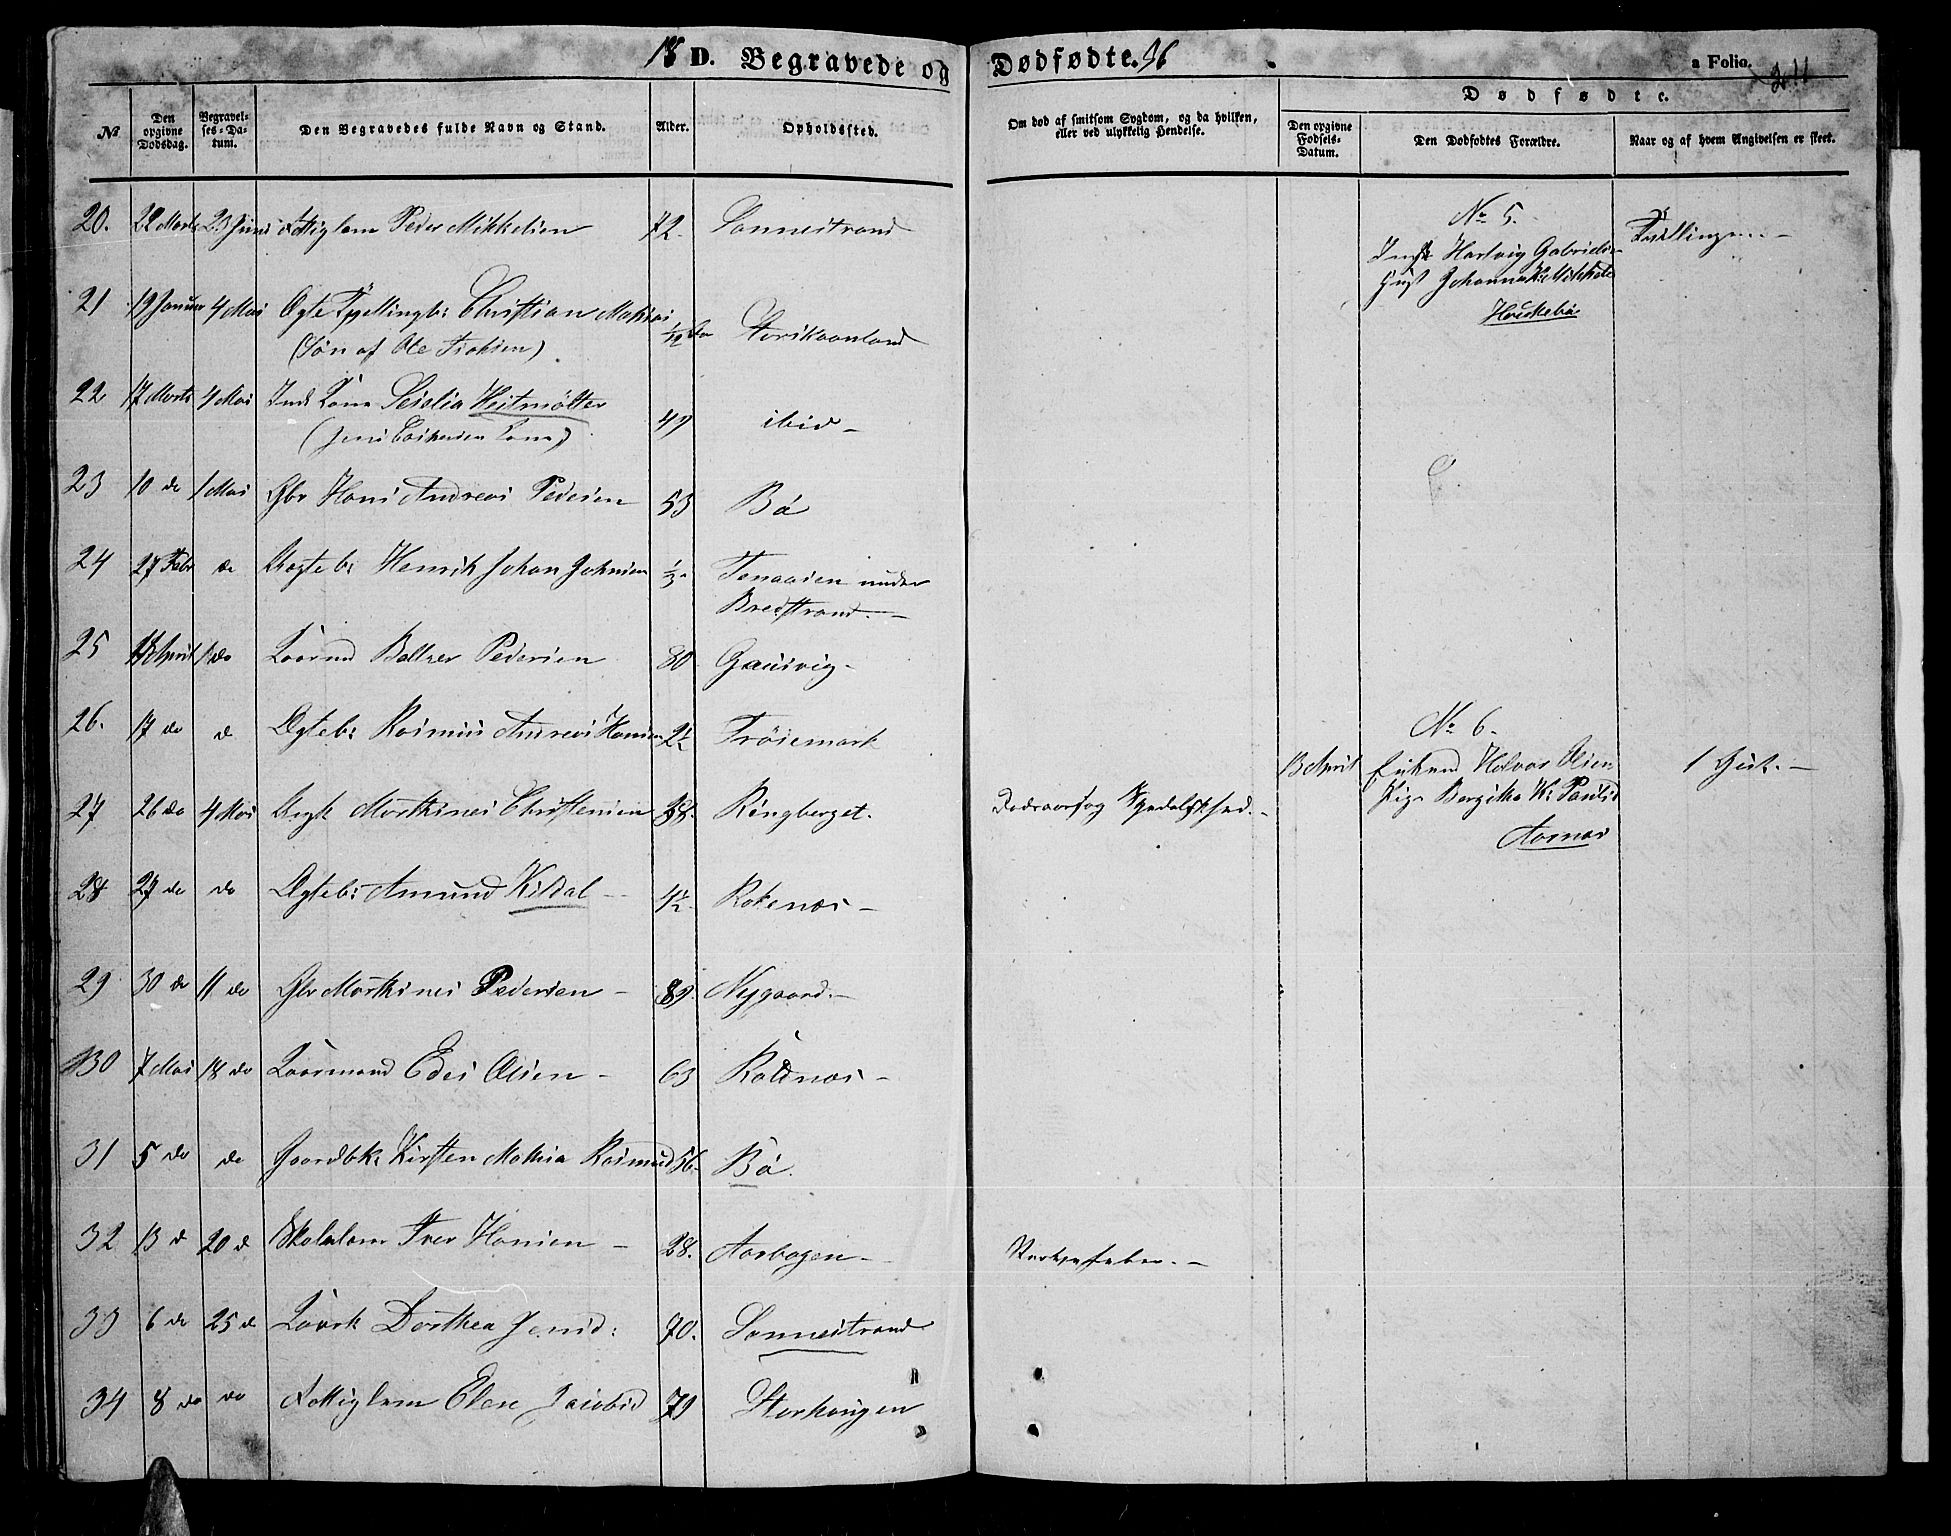 18 D. Begravede og Dødfødte. 36
a Folio. 211
Dødfødte.
№
Den opgivne Dødsdag.
Begravelses-Datum.
Den Begravedes fulde Navn og Stand.
Alder.
Opholdssted.
Om død af smitsom Sygdom, og da hvilken, eller ved ulykkelig Hendelse.
Den opgivne Fødsels-Datum.
Den Dødfødtes Forældre.
Naar og af hvem Angivelsen er skeet.
20. 22 Marts 23 Juni Fattiglem Peder Mikkelsen 72. Sonnestrand
No 5.
Tvillinger
Inds Hartvig Gabriels
Hust Johanna K: Mikkels
21 19 Januar 4 Mai Ægte Tvillingb: Christian Mathias 1/12 do
(Søn af Ole Isaksen)
22 17 Marts 4 Mai Inds Kone Seselia Heitmøller 49 ibid
23 10 do 1 Mai Gbr Hans Andreas Pedersen 53 Bø
24 27 Febr do Ægteb: Henrik Johan Johnsen 1/3
Tenaasen under Bredstrand
25 13 April 1 do Laarmd Baltzer Pedersen 80 Gausvig
26. 17 do d Ægteb: Rasmus Andreas Hansen 2½ Trøiemark
No 6.
13 April Enkemd Halvor Olsen 1 Gut.
Pige Bergitha K: Paulsd
Aarnæs
27 26 do 4 Mai Marthines Christensen 38. Ringberget.
Dødsaarsag Spedalskhed.
28 27 do do Ægteb: Amund Kildal 4½ Rotenæs
29 30 do 11 do Gbr Marthines Pedersen 89. Nygaard.
30 7 Mai 18 do Laarmand Edis Olsen 63 Roldnæs
31 5 do do Gaardbk: Kirsten Mathea Rasmusd 56 Bø.
32 13 d 20 d Skolelærer Iver Hansen 28. Aarbogen
33 6 do 25 d Laark Dorthea Jensd: 70. Sonnestrand
34 8 do do Fattiglem Elen Jacobsd 79 Storhaugen